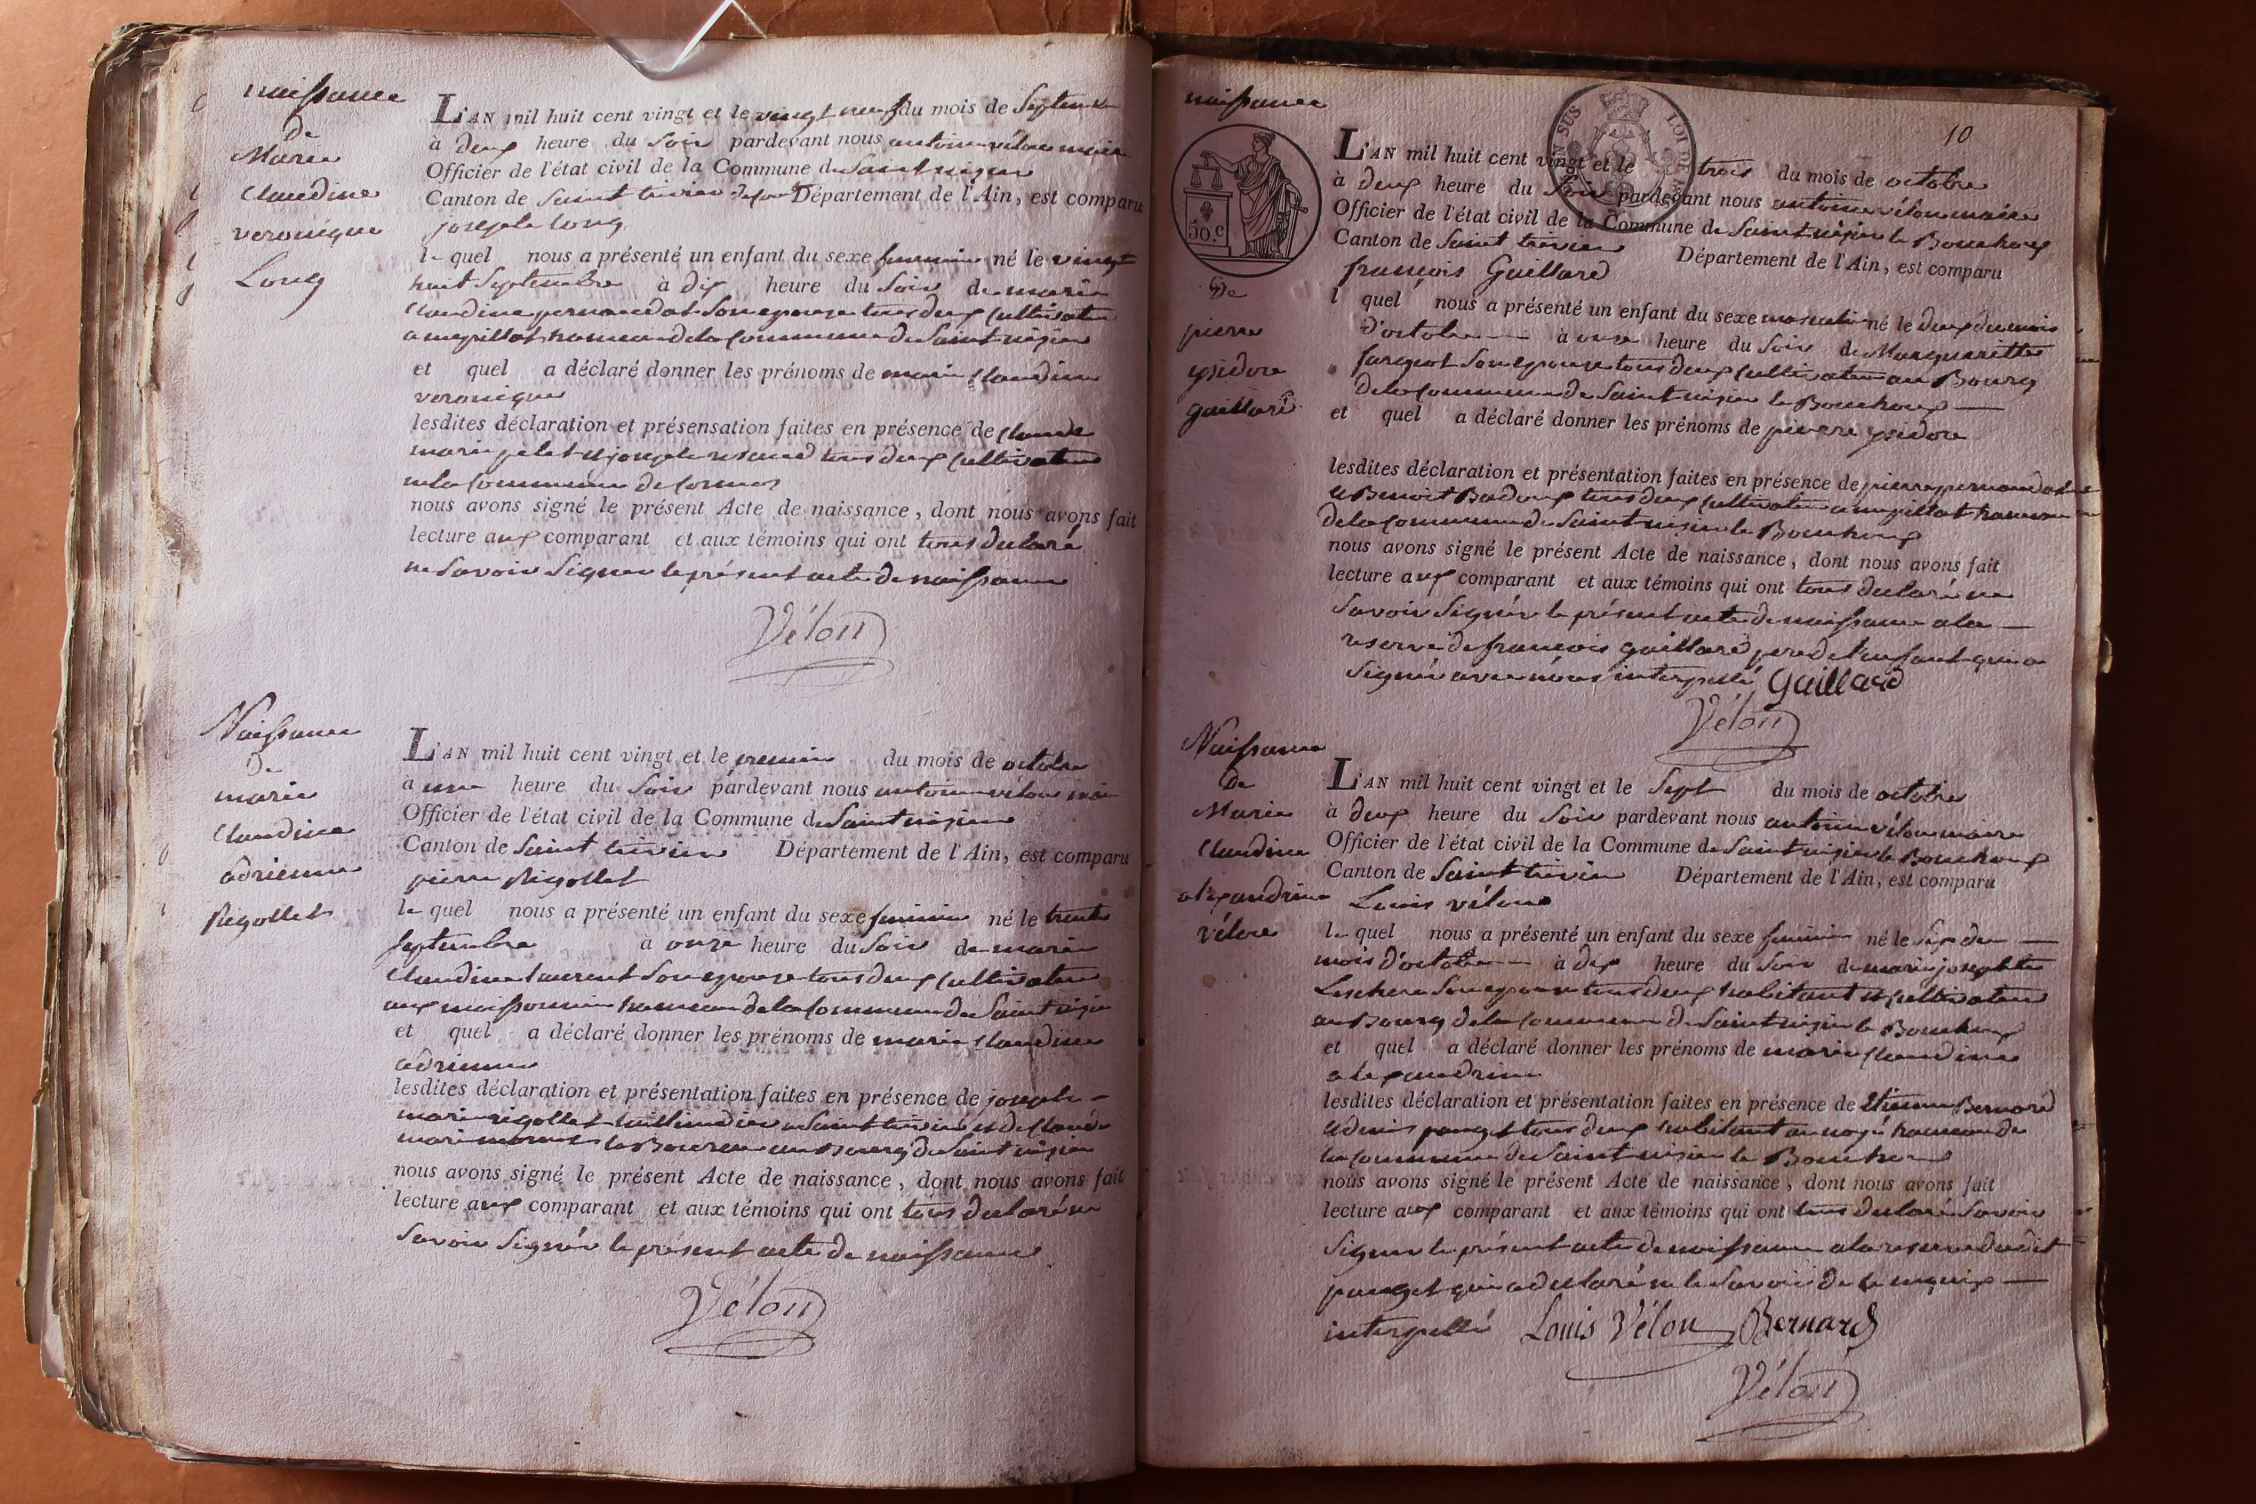 naissance
de
Marie
Claudine
veronique
Long
L'AN mil huit cent vingt et le vingt neuf du mois de Septembre
à deux heure du Soir pardevant nous antoine vélon maire
Officier de l'état civil de la Commune de Saint nizier
Canton de Saint trivier Département de l'Ain, est comparu
joseph Long
le quel nous a présenté un enfant du sexe feminin né le vingt
huit Septembre à dix heure du Soir de marie
Claudine pernaudat Son epouse tous deux Cultivateur
a mepillat hameau de la Commune de Saint nizier
et quel a déclaré donner les prénoms de marie Claudine
veronique
lesdites déclaration et présensation faites en présence de Claude
marie et joseph tous deux Cultivateur
de la Commune de Cormoz
nous avons signé le présent Acte de naissance, dont nous avons fait
lecture aux comparant et aux témoins qui ont tous declaré
ne Savoir Signer le présent acte de naissance
Vélon
Naissance
De
marie
Claudine
adrienne
Rigollet
L'AN mil huit cent vingt et le premier du mois de octobre
a une heure du Soir pardevant nous antoine vélon maire
Officier de l'état civil de la Commune de Saint nizier
Canton de Saint trivier Département de l'Ain, est comparu
pierre Rigollet
le quel nous a présenté un enfant du sexe feminin né le trente
Septembre à onze heure du Soir de marie
Claudine Laurent Son epouse tous deux Cultivateur
aux maissonnier hameau de la Commune de Saint nizier
et quel a déclaré donner les prénoms de marie Claudine
adrienne
lesdites déclaration et présentation faites en présence de joseph
marie rigollet a Saint trivier et de Claude
marie au Bourg de Saint nizier
nous avons signé le présent Acte de naissance, dont nous avons fait
lecture aux comparant et aux témoins qui ont tous declaré ne
Savoir Signér le présent acte de naissance
Vélon
10
naissance
50.c
De
pierre
ysidore
gaillard
L'AN mil huit cent vingt et le trois du mois de octobre
à deux heure du Soir pardevant nous antoine vélon maire
Officier de l'état civil de la Commune de Saint nizier le Bouchoux
Canton de Saint trivier Département de l'Ain, est comparu
françois Gaillard
l quel nous a présenté un enfant du sexe masculin né le deux du mois
d'octobre à onze heure du Soir de Margueritte
farguot Son epouse tous deux Cultivateur au Bourg
de la Commune de Saint nizier le Bouchoux
et quel a déclaré donner les prénoms de pierre ysidore
lesdites déclaration et présentation faites en présence de pierre pernaudat
et Benoit Badoux tous deux Cultivateur a mepillat hameau
de la Commune de Saint nizier le Bouchoux
nous avons signé le présent Acte de naissance, dont nous avons fait
lecture aux comparant et aux témoins qui ont tous declaré ne
Savoir Signér le présent acte de naissance a la
reserve de françois gaillard pere de l'enfant qui a
Signée avec nous interpellé Gaillard
Vélon
Naissance
De
Marie
Claudine
alexandrine
vélon
L'AN mil huit cent vingt et le Sept du mois de octobre
à deux heure du Soir pardevant nous antoine vélon maire
Officier de l'état civil de la Commune de Saint nizier le Bouchoux
Canton de Saint trivier Département de l'Ain, est comparu
Louis vélon
le quel nous a présenté un enfant du sexe feminin né le Six du
mois d'octobre à dix heure du Soir de marie josephte
Lescher Son epouse tous deux habitant et Cultivateur
au Bourg de la Commune de Saint nizier le Bouchoux
et quel a déclaré donner les prénoms de marie Claudine
alexandrine
lesdites déclaration et présentation faites en présence de Etienne Bernard
et denis pauget tous deux habitant au hameau de
la Commune de Saint nizier le Bouchoux
nous avons signé le présent Acte de naissance, dont nous avons fait
lecture aux comparant et aux témoins qui ont tous declaré Savoir
Signer le présent acte de naissance a la reserve dudit
pauget qui a declaré ne le Savoir de ce enquis
interpellé Louis Vélon Bernard
Vélon